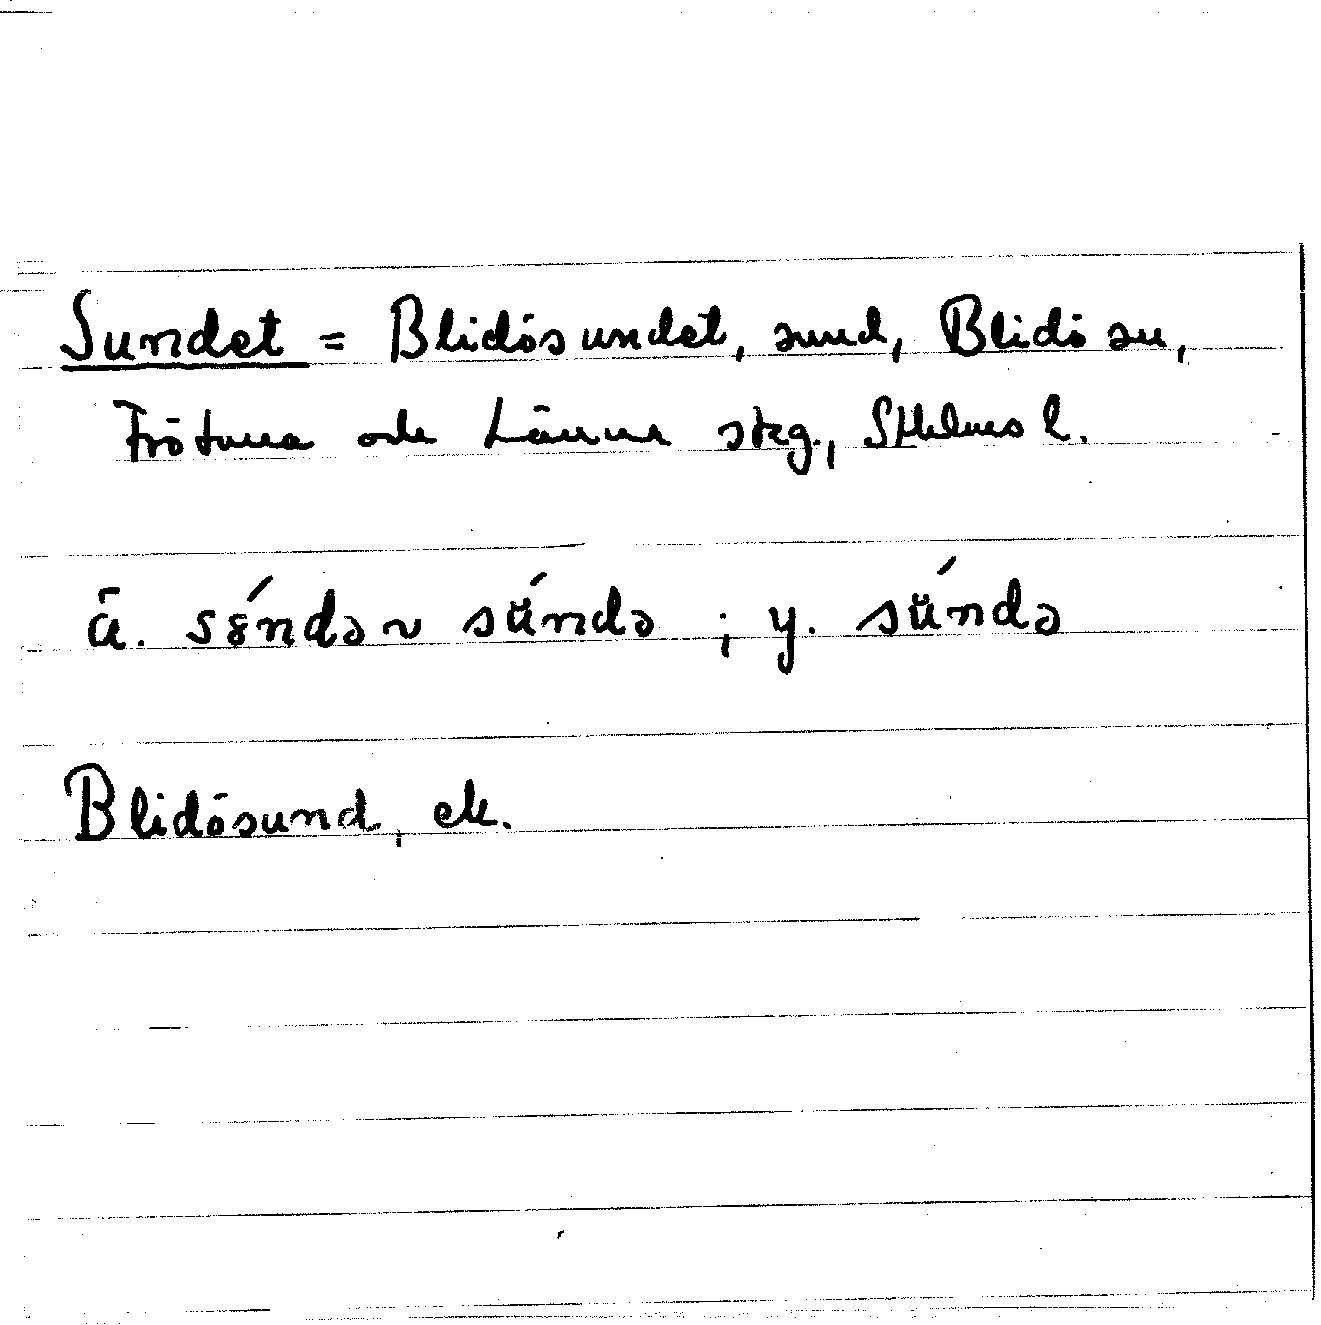 Sundet = Blidösundet, sund, Blidö sn,
Frötuna och Länna skg., Sthlms l.
ä. sȣ́ndə ~ sǘndə ; y. sǘndə
Blidösund, ek.